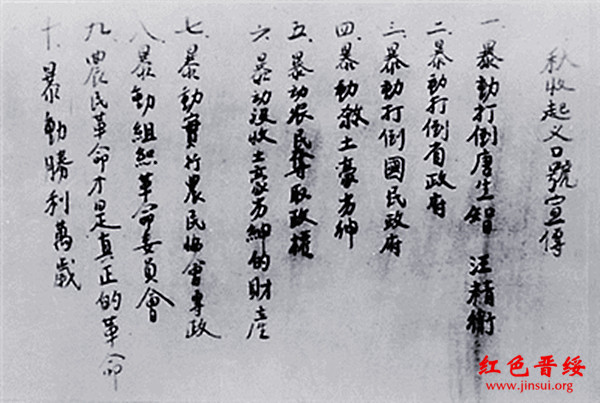 秋收起义口號宣傳
一、暴動打倒唐生智 汪精衛
二、暴動打倒省政府
三、暴動打倒國民政府
四、暴動殺土豪劣紳
五、暴动农民奪取政權
六、暴动沒收土豪劣紳的财産
七、暴動實行農民協會專政
八、暴動組織革命委員會
九、農民革命才是真正的革命
十、暴動勝利萬歲
红色晋绥
www.jinsui.org